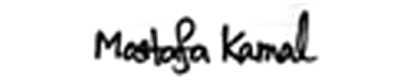 Mostafa Kamal